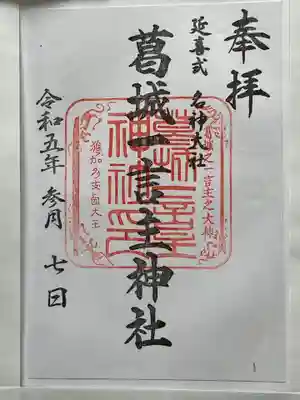 奉拝
延喜式 名神大社
葛城一言主神社
令和五年 参月 七日
葛城之一言主之大神